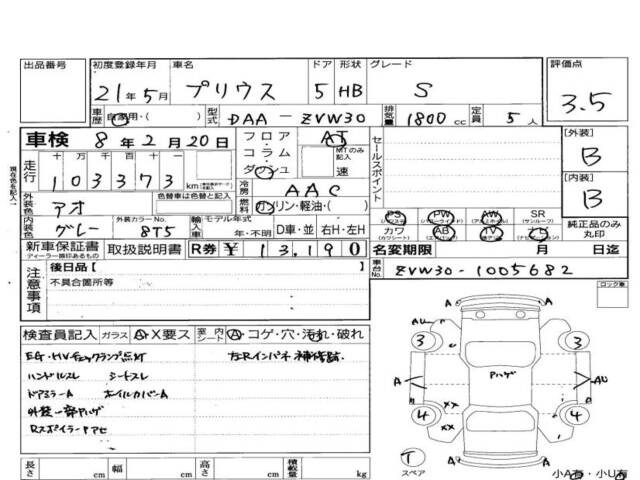 出品番号 初度登録年月 車名 ドア 形状 グレード 評価点
21年5月 プリウス 5 HB S 3.5
車歴 自家用・( ) 型式 DAA-ZVW30 排気量 1800cc 定員 5人
車検 8年2月20日 フロア・コラム・ダッシュ AT MTのみ記入 速 セールスポイント
[外装] B
走行 十 万 千 百 十 一
103373 km
冷房 AAC
[内装] B
外装色 アオ 色替車は色替と記入 燃料 ガソリン・軽油・( )
内装色 グレー 外装カラーNo. 8T5 輸入車 モデル年式 年・不明 D車・並 右H・左H
PS PW AW SR (サンルーフ)
カワ (カワシート) AB TV ナビ 純正品のみ丸印
新車保証書 ディーラー捺印あるもの 取扱説明書 R券 ¥13190 名変期限 月 日迄
注意事項 後日品[ ]
不具合箇所等
車台No. ZVW30-1005682
現在色を記入
ロック車
検査員記入 ガラス A・X要ス 室内シート A・コゲ・穴・汚れ・破れ
EG・HVチェックランプ点灯 左Rインパネ補修跡
ハンドルスレ シートスレ
ドアミラーA ホイルカバーA
外装一部ハゲ
RスポイラーPアセ
A
AU A
3 3
A Pハゲ AU
XX
4 4
XX
A
T
スペア
A
長さ cm 幅 cm 高さ cm 積載量 kg 小A有・小U有